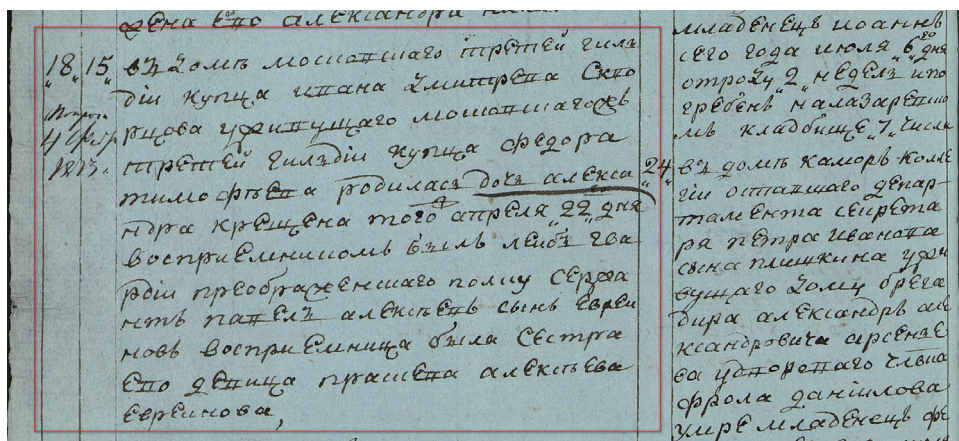 жена его александра
18 15 въ Домѣ московскаго третей гилъ
діи купца ивана Дмитрева Скво
рцова у живущаго московскагожъ
4
третей гилъдіи купца федора
тимофѣева родилась дочь алекса
ндра крещена того апреля „22„ дня
восприемникомъ былъ лейбъ гва
рдіи преображенскаго полку сержа
нтъ павелъ алексѣевъ сынъ евреи
новъ восприемница была сестра
его девица прасковья алексѣева
евреинова,
младенецъ иоаннъ
сего года июля „6„ дня
отроду „2„ неделъ и по
гребенъ на лазаревско
мъ кладбище „7„ числа
„24„ въ домѣ каморъ колле
гіи оставшаго депар-
тамента секрета
ря петра иванова
сына плишкина у жи
вущаго Дому брега
дира александръ але
ксандровича арсенье
ва удвороваго члвка
фрола данилова
умре младенецъ фе